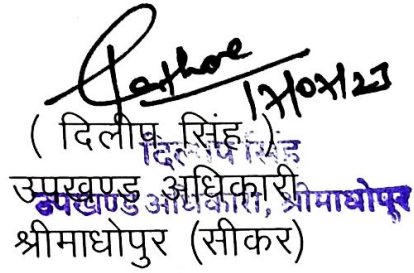 Rathore
17/07/23
( दिलीप सिंह )
दिलीप सिंह
उपखण्ड अधिकारी
उपखण्ड अधिकारी, श्रीमाधोपुर
श्रीमाधोपुर (सीकर)